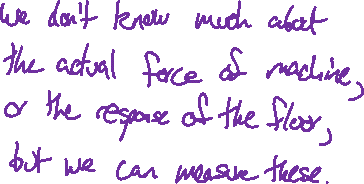 We don't know much about
the actual force of machine,
or the response of the floor,
but we can measure these.